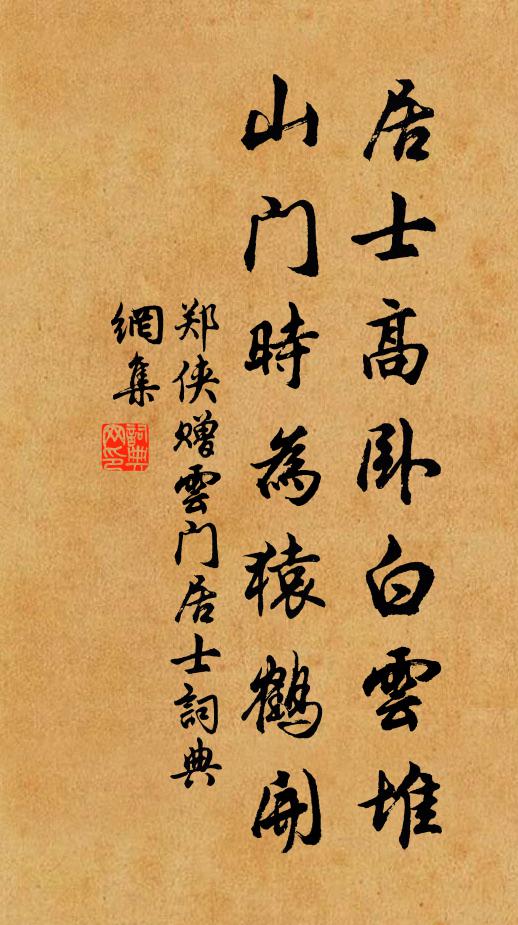 居士高卧白雲堆
山门時為猿鶴開
郑侠赠雲门居士詞典
網集
詞典網印